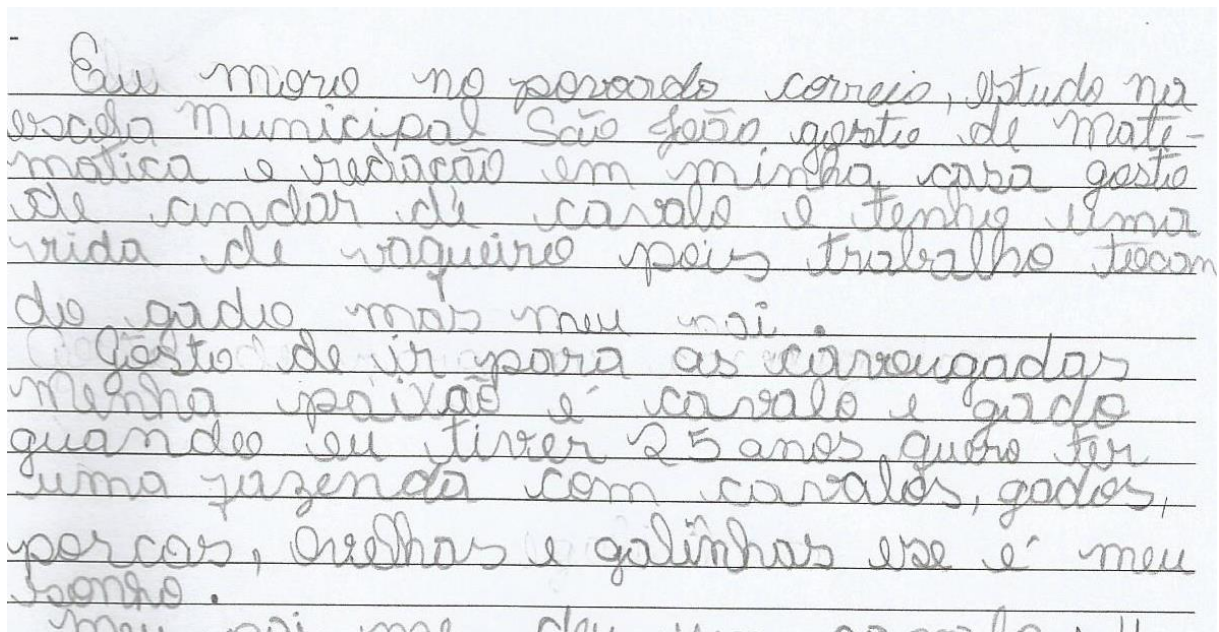 Eu moro no povoado correio, estudo na
escola Municipal São João gosto de Mate-
mática e redação em minha casa gosto
de andar de cavalo e tenho uma
vida de vaqueiro pois trabalho tocan
do gado mas meu pai.
Gosto de ir para as
Minha paixão é cavalo e gado
quando eu tiver 25 anos quero ter
uma fazenda com cavalos, gados,
porcos, ovelhas e galinhas ese é meu
sonho.
Meu pai me deu um